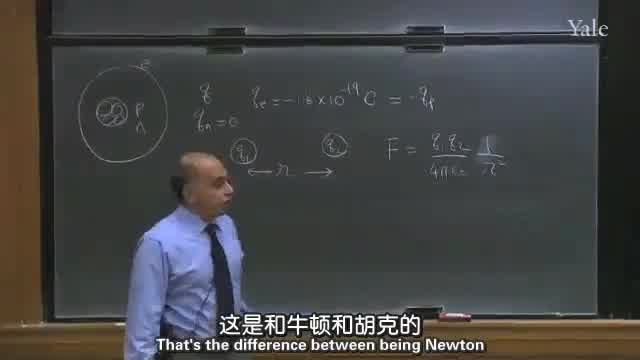 Yale
e
q qe = -1.6 × 10⁻¹⁹ C = -qp
P
n
qn = 0
q₁ q₂
← r →
F = q₁q₂/4πε₀ 1/r²
这是和牛顿和胡克的
That's the difference between being Newton